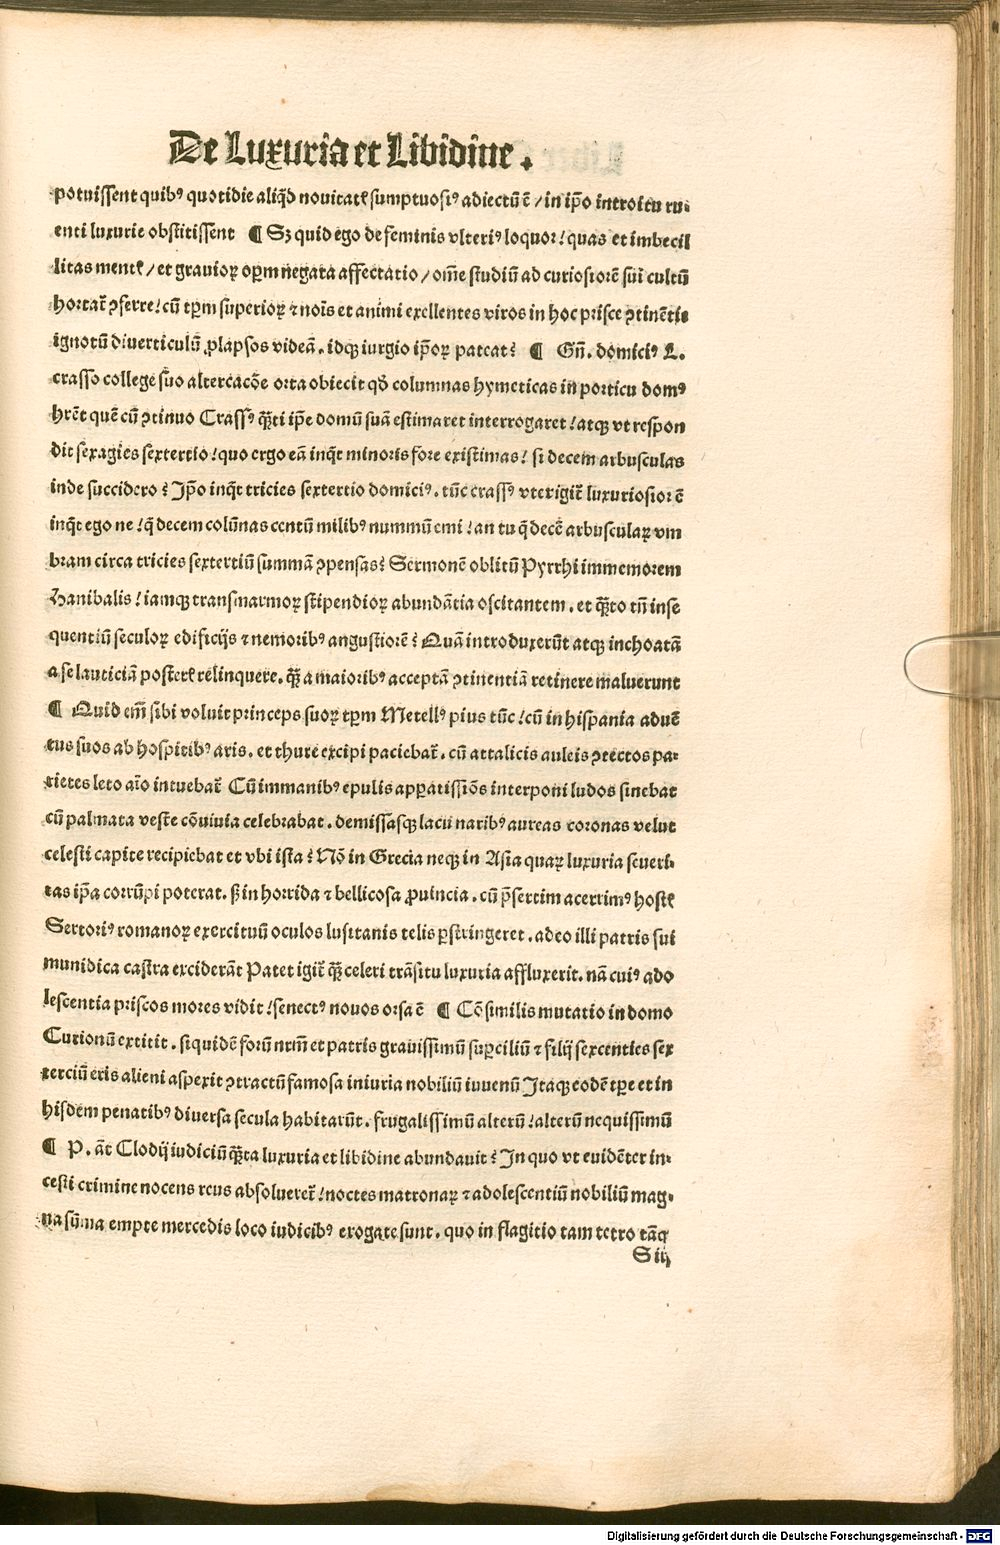 De Luxuria et Libidine.
potuissent quibꝰ quotidie aliqd̄ nouitatꝭ sumptuosiꝰ adiectū ē / in ip̄o introitu ru⸗
enti luxurie obstitissent ¶ Sꝫ quid ego de feminis vlteriꝰ loquor! quas et imbecil
litas mentꝭ / et grauioꝝ oꝑm negata affectatio / om̄e studiū ad curiosiorē sui cultū
hortat᷑ ꝯferre! cū tꝑm superioꝝ ⁊ nōis et animi excellentes viros in hoc prisce ꝯtinētie
ignotū diuerticulū ꝓlapsos videā. idqꝫ iurgio ip̄oꝝ pateat? ¶ Gn̄. domiciꝰ L.
crasso college suo altercacōe orta obiecit qd̓ columnas hymeticas in porticu domꝰ
hr̄et quē cū ꝯtinuo Crassꝰ q̄ti ip̄e domū suā estimaret interrogaret! atqꝫ vt respon
dit sexagies sextertio! quo ergo eā inq̄t minoris fore existimas! si decem arbusculas
inde succidero? Ip̄o inq̄t tricies sextertio domiciꝰ. tūc crassꝰ vter igit᷑ luxuriosior ē
inq̄t ego ne! q̄ decem colūnas centū milibꝰ nummū emi! an tu q̄ decē arbusculaꝝ vm
bram circa tricies sextertiū summā ꝯpensas? Sermonē oblitū Pyrrhi immemorem
Hanibalis! iamqꝫ transmarinoꝝ stipendioꝝ abundātia oscitantem. et q̄to tn̄ inse
quentiū seculoꝝ edificijs ⁊ nemoribꝰ angustiorē? Quā introduxerūt atqꝫ inchoatā
a se lauticiā posterꝭ relinquere. q̄ a maioribꝰ acceptā ꝯtinentiā retinere maluerunt
¶ Quid em̄ sibi voluit princeps suoꝝ tꝑm Metellꝰ pius tūc! cū in hispania aduē
tus suos ab hospitibꝰ aris. et thure excipi paciebat᷑. cū attalicis auleis ꝯtectos pa⸗
rietes leto aīo intuebat᷑ Cū immanibꝰ epulis apꝑatissiōs interponi ludos sinebat
cū palmata veste cōuiuia celebrabat. demissasqꝫ lacunaribꝰ aureas coronas velut
celesti capite recipiebat et vbi ista? Nō in Grecia neqꝫ in Asia quaꝝ luxuria seueri⸗
tas ip̄a corrūpi poterat. ß in horrida ⁊ bellicosa ꝓuincia. cū p̄sertim acerrimꝰ hostꝭ
Sertoriꝰ romanoꝝ exercituū oculos lusitanis telis ꝑstringeret. adeo illi patris sui
munidica castra exciderāt Patet igit᷑ q̄ celeri trāsitu luxuria affluxerit. nā cuiꝰ ado
lescentia priscos mores vidit! senectꝰ nouos orsa ē ¶ Cōsimilis mutatio in domo
Curionū extitit. siquidē forū nr̄m et patris grauissimū suꝑciliū ⁊ filij sexcenties sex
terciū eris alieni aspexit ꝯtractū famosa iniuria nobiliū iuuenū Itaqꝫ eodē tꝑe et in
hisdem penatibꝰ diuersa secula habitarūt. frugalissimū alterū! alterū nequissimū
¶ P. āt Clodij iudiciū q̄ta luxuria et libidine abundauit? In quo vt euidēter in⸗
cesti crimine nocens reus absolueret᷑! noctes matronaꝝ ⁊ adolescentiū nobiliū mag⸗
na sūma empte mercedis loco iudicibꝰ erogate sunt. quo in flagitio tam tetro tāqꝫ
S iij
Digitalisierung gefördert durch die Deutsche Forschungsgemeinschaft - DFG